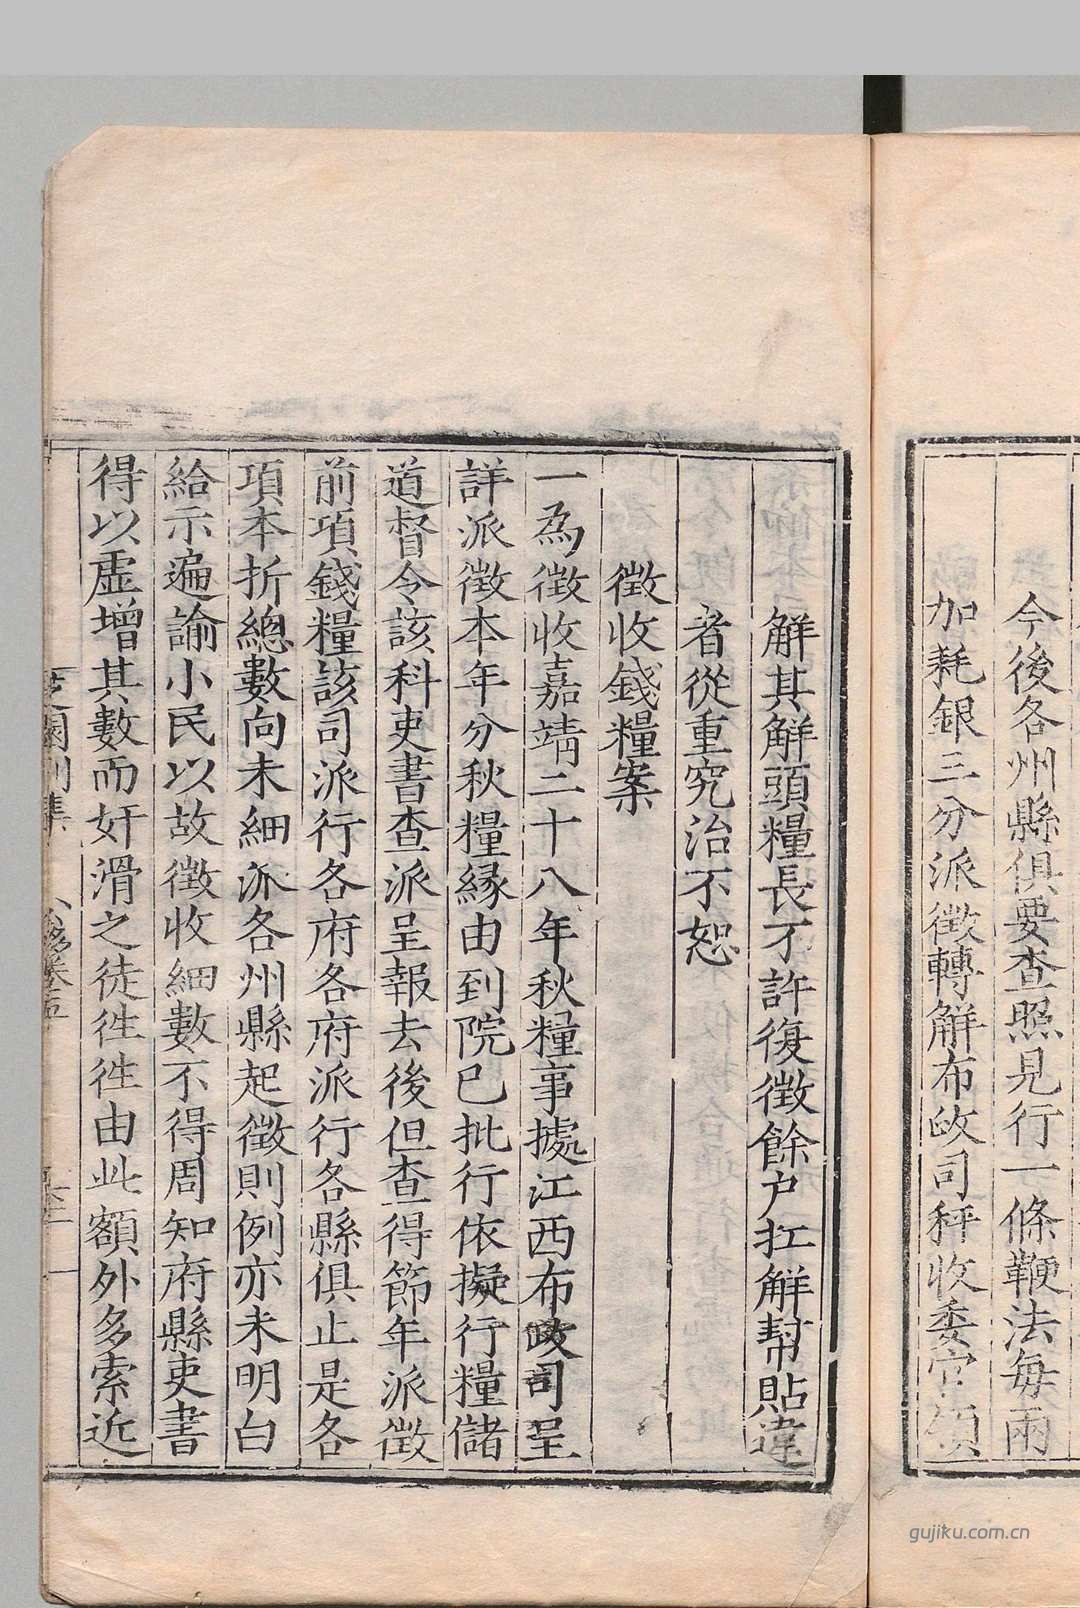 今後各州縣俱要查照見行一條鞭法每兩
加耗銀三分派徵轉解布政司秤收委官領
解其解頭糧長不許復徵餘户扛解幫貼違
者從重究治不恕
徵收錢糧案
一為徵收嘉靖二十八年秋糧事據江西布政司呈
詳派徵本年分秋糧緣由到院已批行依擬行糧儲
道督令該科吏書查派呈報去後但查得節年派徵
前項錢糧該司派行各府各府派行各縣俱止是各
項本折總數向未細派各州縣起徵則例亦未明白
給示遍諭小民以故徵收細數不得周知府縣吏書
得以虛增其數而奸滑之徒徃徃由此額外多索近
芝園別集
公移卷五
gujiku.com.cn